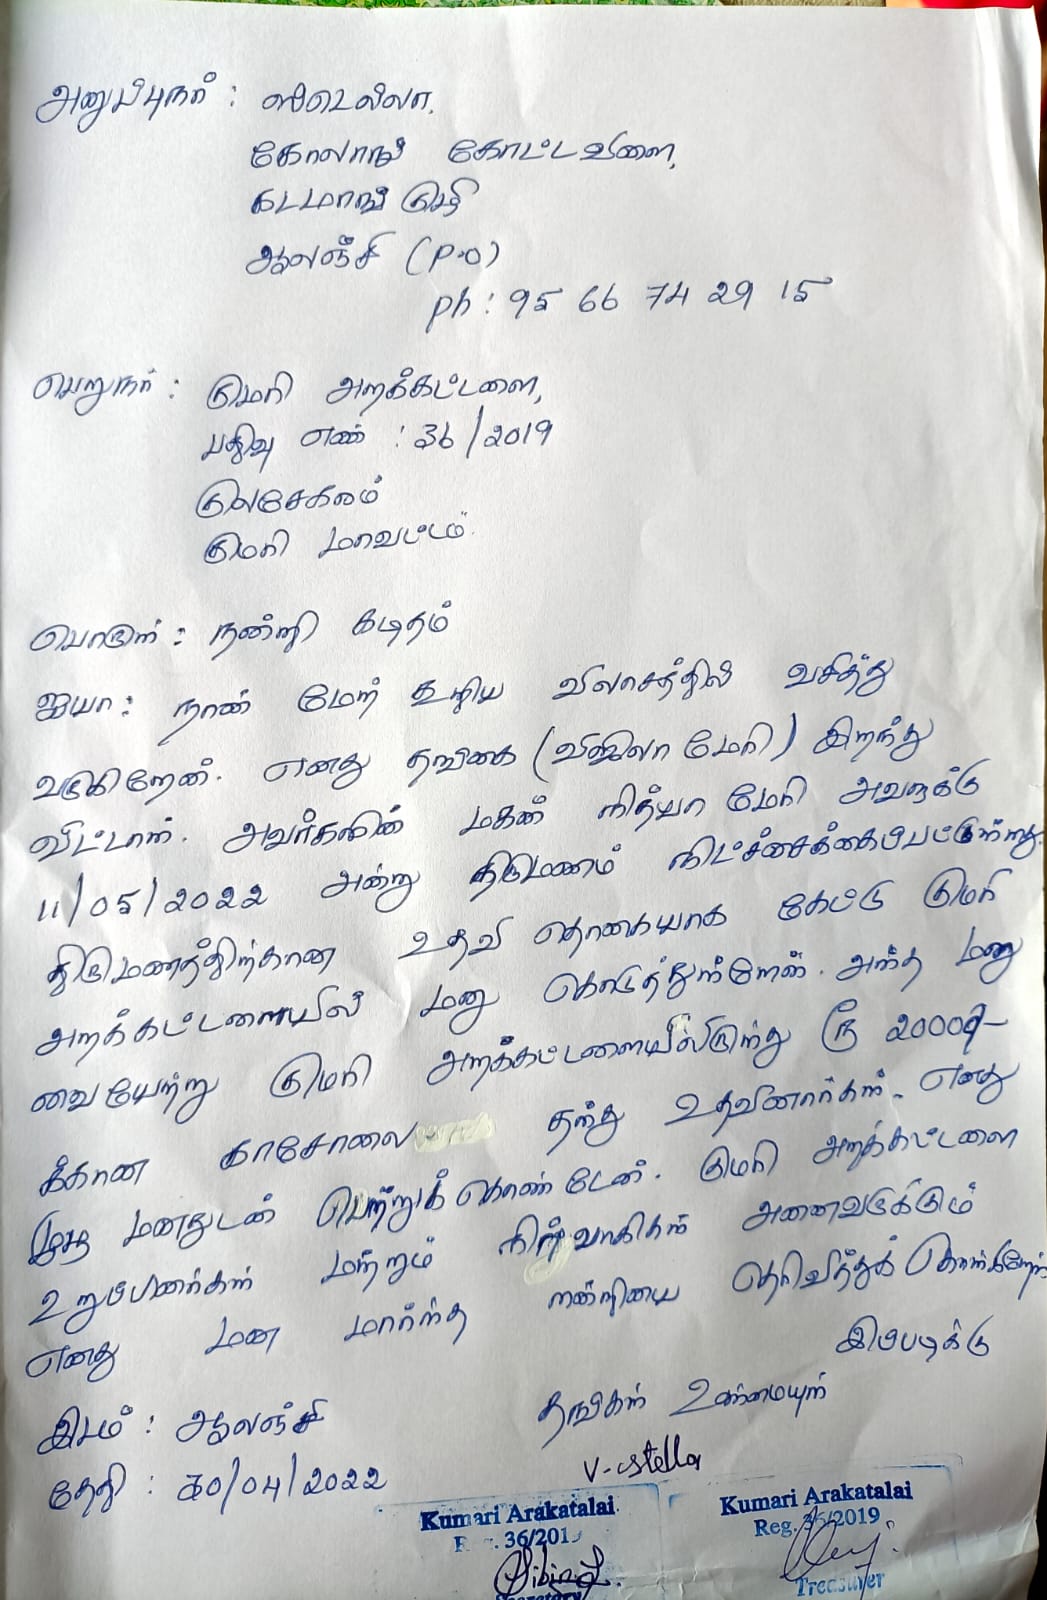 அனுப்புநர் : ஸ்டெல்லா,
கோலாங் கோட்டவிளை,
கடமாங் குழி
ஆலஞ்சி (P.O)
Ph : 95 66 74 29 15
பெறுநர் : குமரி அறக்கட்டளை,
பதிவு எண் : 36/2019
குலசேகரம்
குமரி மாவட்டம்.
பொருள் : நன்றி கடிதம்
ஐயா : நான் மேற் கூறிய விலாசத்தில் வசித்து
வருகிறேன். எனது தங்கை (விஜிலா மேரி) இறந்து
விட்டாள். அவர்களின் மகள் நித்யா மேரி அவளுக்கு
11/05/2022 அன்று திருமணம் நிட்ச்சைக்கைப்பட்டுள்ளது.
திருமணத்திற்கான உதவி தொகையாக கேட்டு குமரி
அறக்கட்டளையில் மனு கொடுத்துள்ளேன். அந்த மனு
வையேற்று குமரி அறக்கட்டளையிலிருந்து ரூ 20000/-
க்கான காசோலை தந்து உதவினார்கள். எனது
முழு மனதுடன் பெற்றுக் கொண்டேன். குமரி அறக்கட்டளை
உறுப்பினர்கள் மற்றும் நிர்வாகிகள் அனைவருக்கும்
எனது மன மார்ந்த நன்றியை தெரிவித்துக் கொள்கிறேன்
இப்படிக்கு
இடம் : ஆலஞ்சி
தங்கள் உண்மையுள்
தேதி : 30/04/2022
V-stella
Kumari Arakatalai
Reg. 36/2019
Secretary
Kumari Arakatalai
Reg. 36/2019
Treasurer